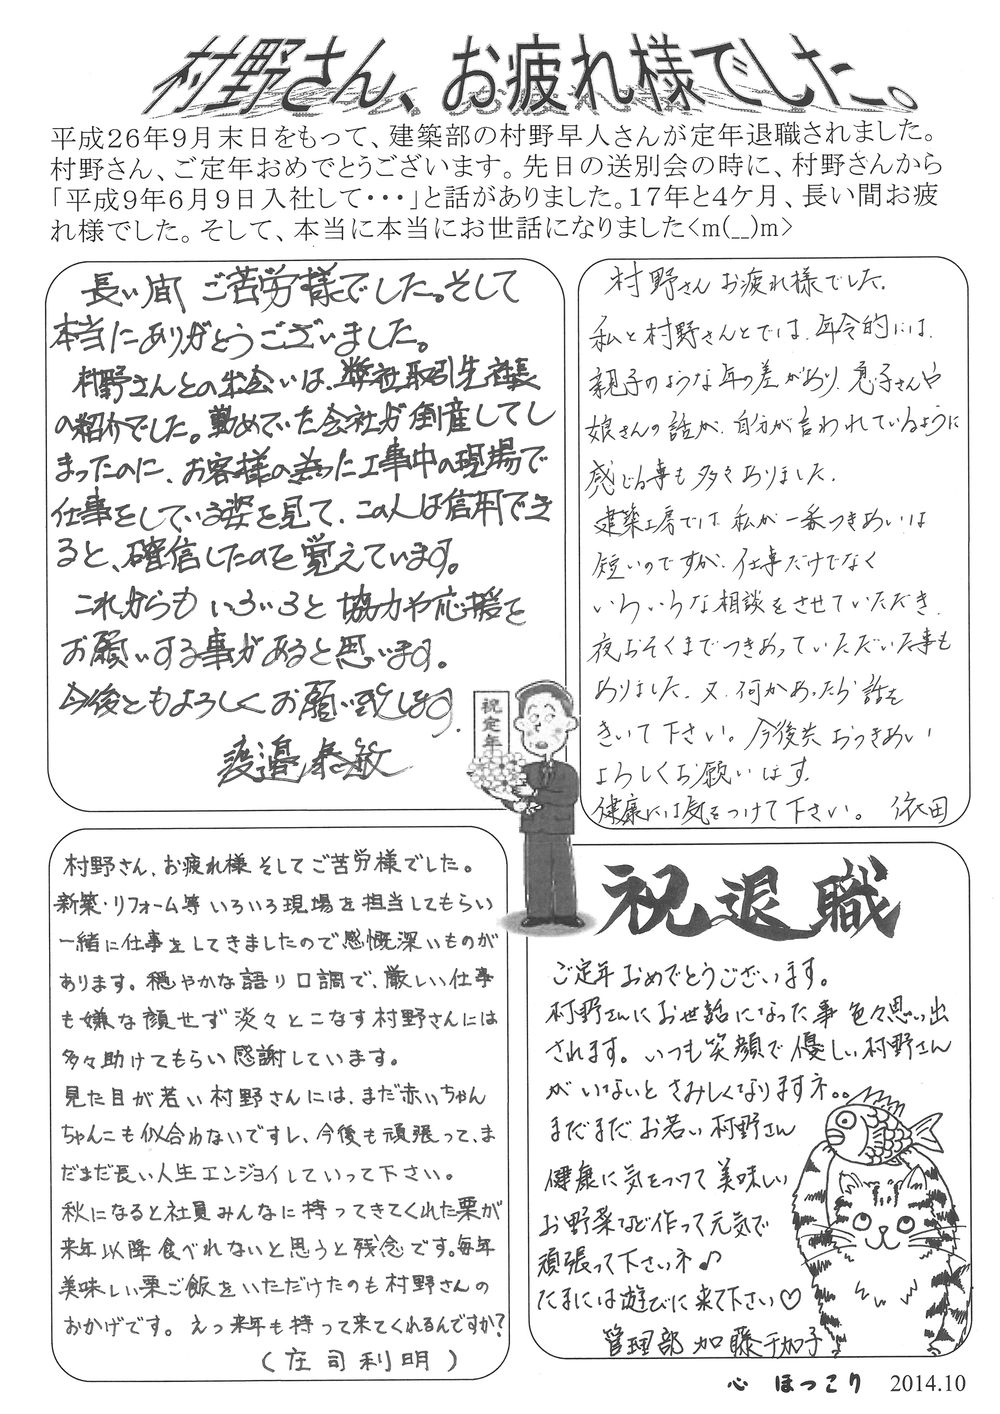 村野さん、お疲れ様でした。
平成26年9月末日をもって、建築部の村野早人さんが定年退職されました。
村野さん、ご定年おめでとうございます。先日の送別会の時に、村野さんから
「平成9年6月9日入社して・・・」と話がありました。17年と4ケ月、長い間お疲
れ様でした。そして、本当に本当にお世話になりました<m(__)m>
長い間、ご苦労様でした。そして
本当にありがとうございました。
村野さんとの出会いは、弊社取引先社長
の紹介でした。勤めていた会社が倒産してし
まったのに、お客様の為った工事中の現場で
仕事をしている姿を見て、この人は信用でき
ると、確信したのを覚えています。
これからもいろいろと協力や応援を
お願いする事があると思います。
今後ともよろしくお願い致します。
渡邉泰敏
村野さんお疲れ様でした。
私と村野さんとでは、年令的には、
親子のような年の差があり、息子さんや
娘さんの話が、自分が言われているように
感じる事も多々ありました。
建築工房では、私が一番つきあいは
短いのですが、仕事だけでなく
いろいろな相談をさせていただき、
夜おそくまでつきあっていただいた事も
ありました。又、何かあったら話を
きいて下さい。今後共おつきあい
よろしくお願いします。
健康には気をつけて下さい。 依田
祝定年
村野さん、お疲れ様そしてご苦労様でした。
新築・リフォーム等いろいろ現場を担当してもらい
一緒に仕事をしてきましたので感慨深いものが
あります。穏やかな語り口調で、厳しい仕事
も嫌な顔せず淡々とこなす村野さんには
多々助けてもらい感謝しています。
見た目が若い村野さんには、まだ赤いちゃん
ちゃんこも似合わないですし、今後も頑張って、ま
だまだ長い人生エンジョイしていって下さい。
秋になると社員みんなに持ってきてくれた栗が
来年以降食べれないと思うと残念です。毎年
美味しい栗ご飯をいただけたのも村野さんの
おかげです。えっ来年も持って来てくれるんですか?
(庄司利明)
祝退職
ご定年おめでとうございます。
村野さんにお世話になった事色々思い出
されます。いつも笑顔で優しい村野さん
がいないとさみしくなりますネ。。
まだまだお若い村野さん
健康に気をつけて美味しい
お野菜など作って元気で
頑張って下さいネ♪
たまには遊びに来て下さい♡
管理部 加藤千加子
心 ほっこり 2014.10